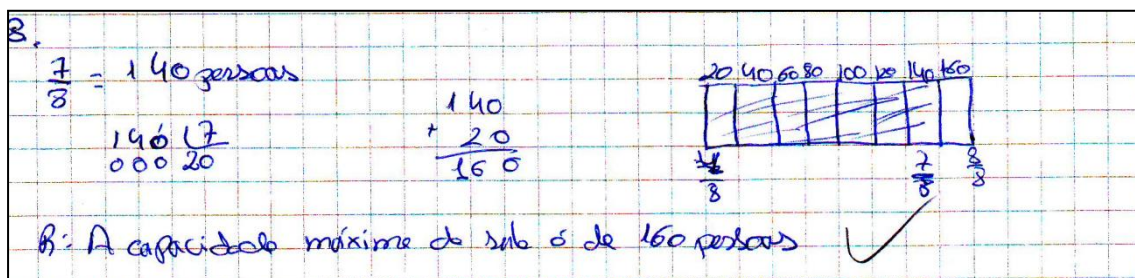 3.
7/8 = 140 pessoas
20 40 60 80 100 120 140 160
140 | 7
000 20
140
+ 20
160
8
7/8
8/8
R: A capacidade máxima da sala é de 160 pessoas